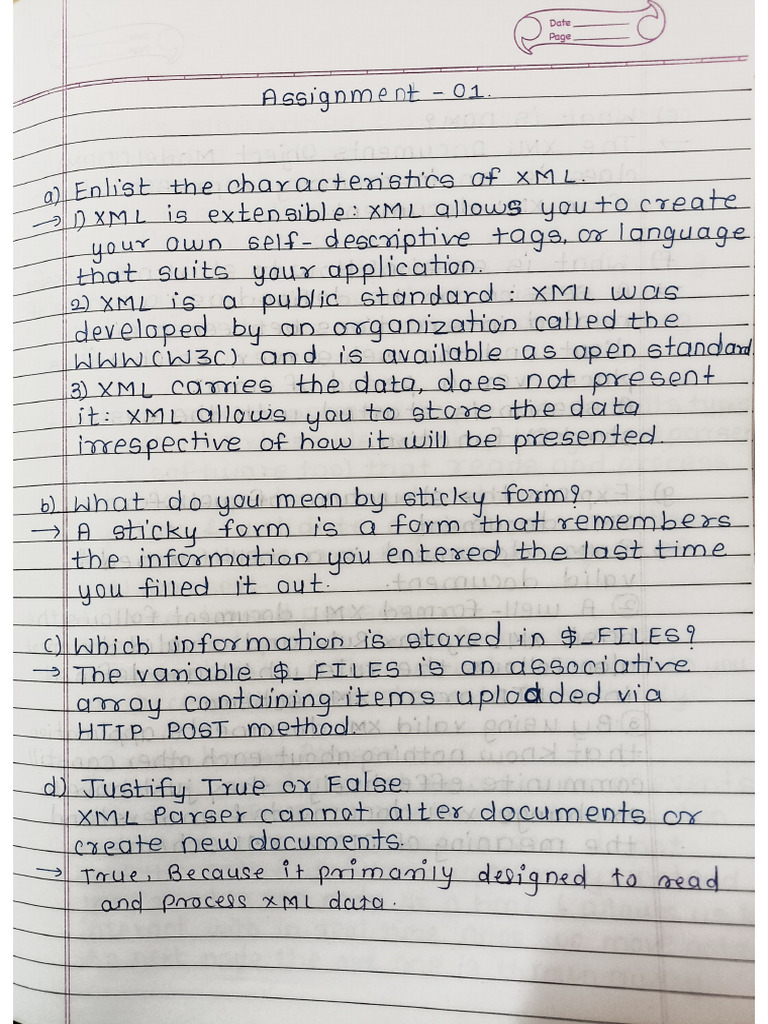 Date
Page
Assignment - 01.
a) Enlist the characteristics of XML.
→ 1) XML is extensible: XML allows you to create
your own self-descriptive tags, or language
that suits your application.
2) XML is a public standard: XML was
developed by an organization called the
WWW(W3C) and is available as open standard.
3) XML carries the data, does not present
it: XML allows you to store the data
irrespective of how it will be presented.
b) What do you mean by sticky form?
→ A sticky form is a form that remembers
the information you entered the last time
you filled it out.
c) Which information is stored in $_FILES?
→ The variable $_FILES is an associative
array containing items uploaded via
HTTP POST method.
d) Justify True or False.
XML Parser cannot alter documents or
create new documents.
→ True, Because it primarily designed to read
and process XML data.